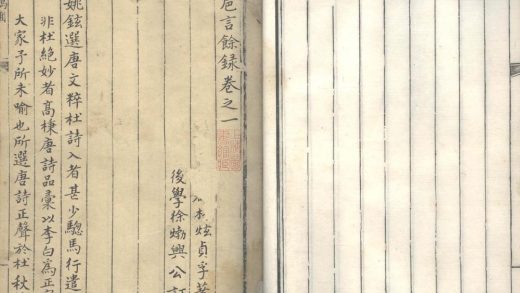 巵言餘録卷之一
炫貞孚
後學徐𤊹興公訂
姚鉉選唐文粹杜詩入者甚少驄馬行遣
非杜絶妙者高棅唐詩品彙以李白爲正
大家予所未喻也所選唐詩正聲於杜秋